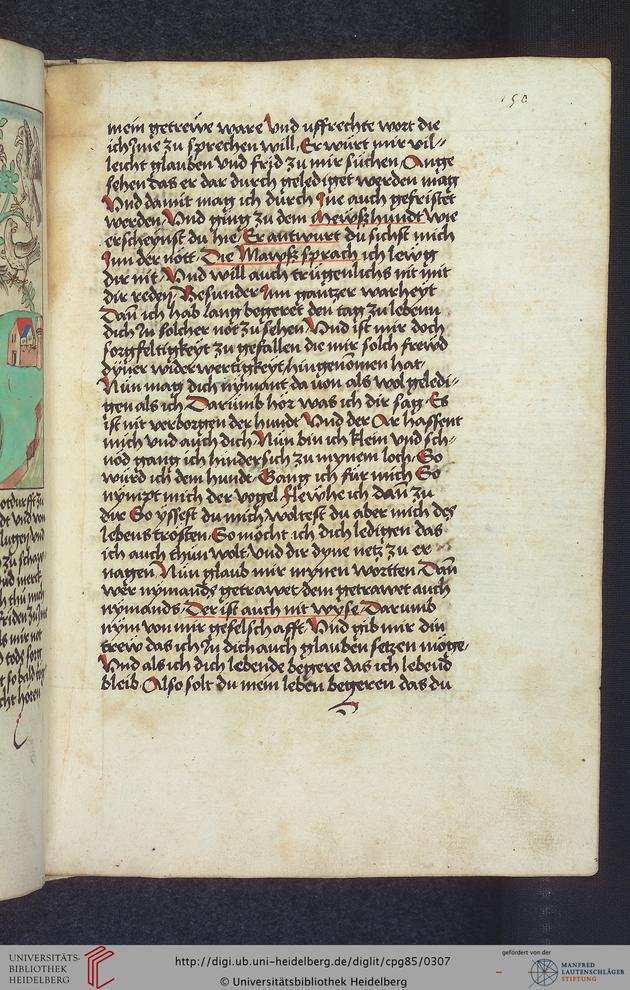 150
mein getreẅe ware Vnd uffrechte wort die
ich Jme zu sprechen will. Er würt mir vil=
leicht glauben vnd frid zu mir suchen Ange
sehen das er dar durch gelediget werden mag
Vnd damit mag ich durch Jne auch gefristet
werden. Vnd ging zu dem Mewßhundt wie
erscheynst du hie. Er antwurt du sichst mich
Jnn der nott. Die Mawß sprach ich lewg
dir nit. Vnd will auch trügenlichs nit mit
dir reden Besunder Jm gantzer warheyt
Dañ ich hab lang begeret den tag zu lebenn
dich Jn solcher not zu sehen Vnd ist mir doch
sorgfeltigkeyt zu gefallen die mir solch frewd
dyner widerwertigkeyt hingenom̄en hat.
Nün mag dich nymant da von als wol geledi=
gen als ich Darümb hör was ich dir sag. Es
ist nit verborgen der hundt Vnd der Ar hassent
mich vnd auch dich. Nün bin ich klein vnd sch=
nöd gang ich hindersich zu mynem loch. So
würd ich dem hundt. Gang ich für mich So
nympt mich der vogel. flewhe ich dañ zu
dir So yssest du mich woltest du aber mich des
lebens trösten. So möcht ich dich ledigen das
ich auch thün wolt vnd dir dyne netz zu er
nagen Nün glaub mir mynen wortten. Dañ
wer nymands getrawet dem getrawet auch
nymands. Der ist auch nit wyse. Darumb
nym von mir geselschafft. Vnd gib mir din
trew das ich Jn dich auch glauben setzen möge.
Vnd als ich dich lebende begere das ich lebend
bleib. Also solt du mein leben begeren das du
otdurfft zu
zu schaw
nd merck
h thü mich
ls mir not
d tods sorg
t so bald
cht hören
UNIVERSITÄTS-
BIBLIOTHEK
HEIDELBERG
http://digi.ub.uni-heidelberg.de/diglit/cpg85/0307
© Universitätsbibliothek Heidelberg
gefördert von der
MANFRED
LAUTENSCHLÄGER
STIFTUNG